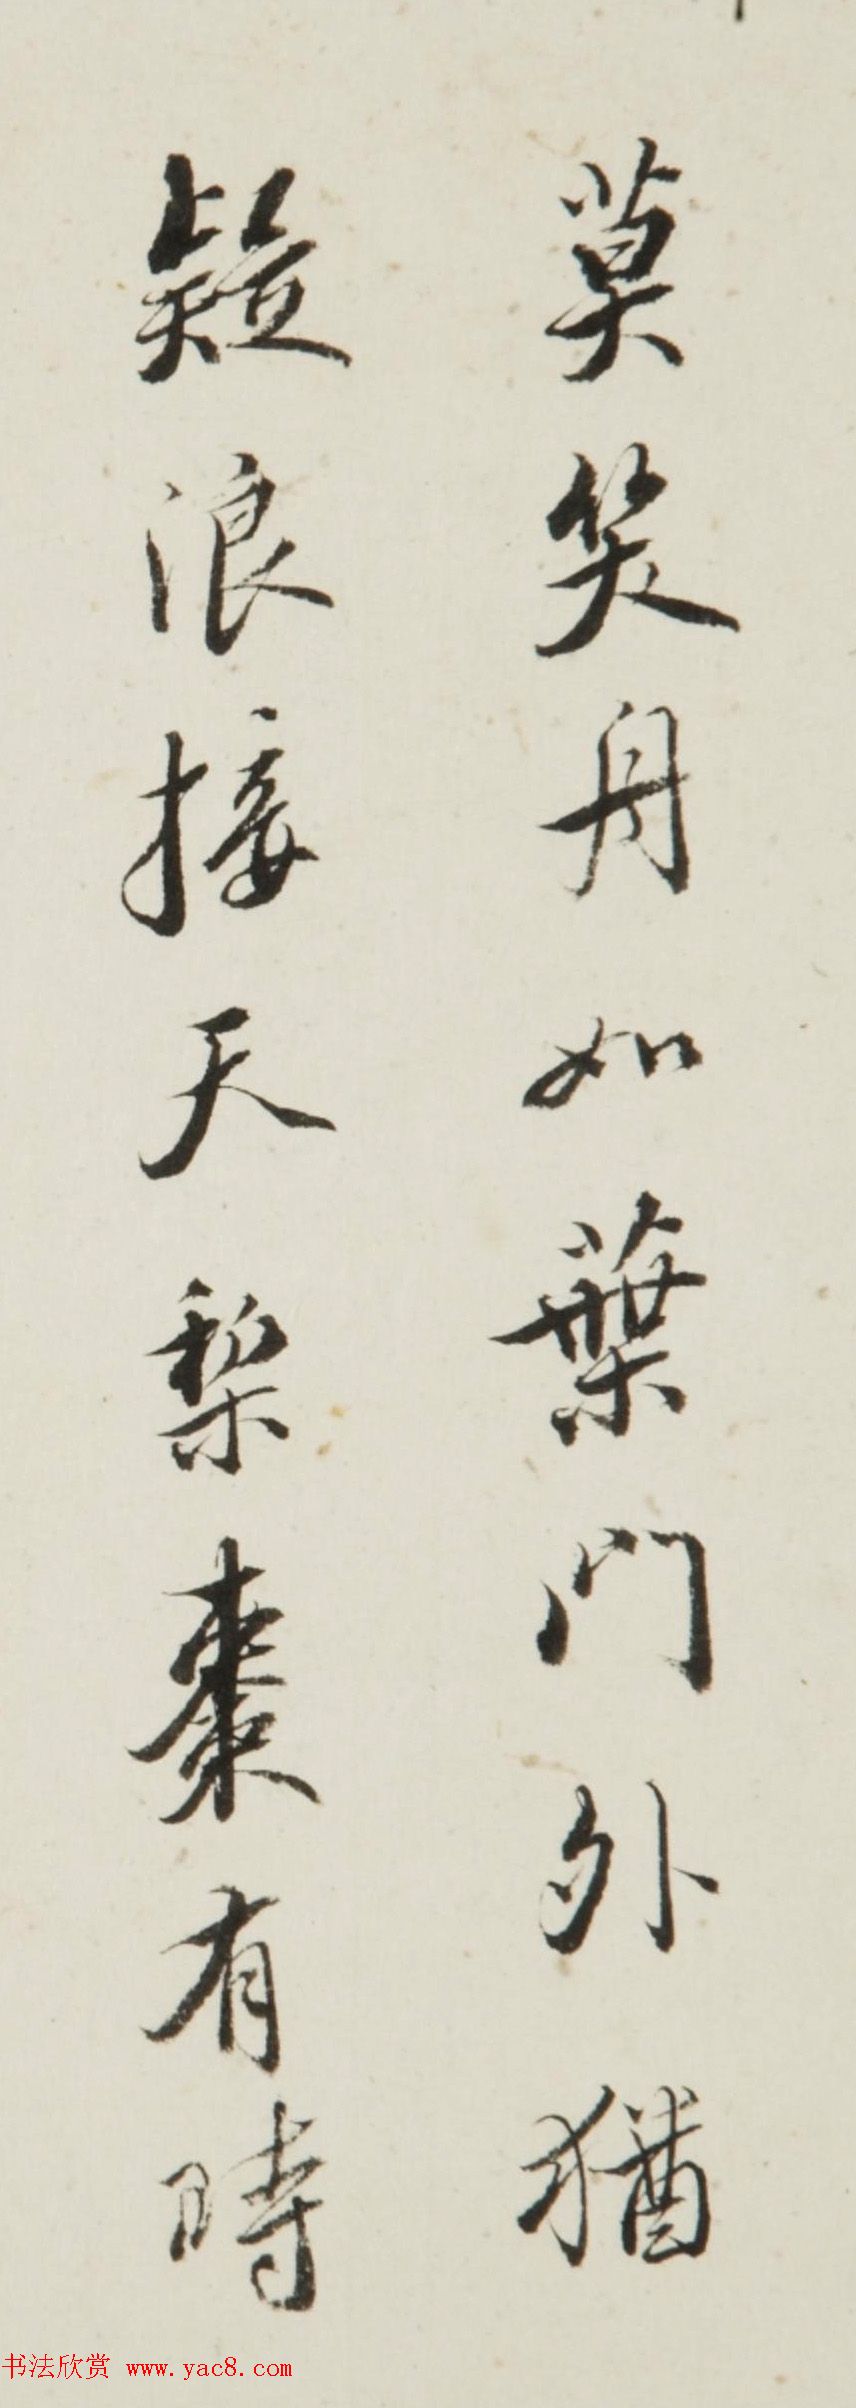 莫笑舟如葉門外猶
疑浪接天梨棗有時
书法欣赏 www.yac8.com